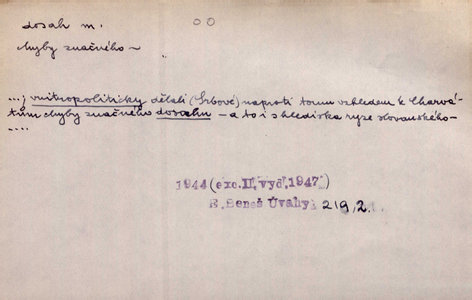 dosah m.
chyby značného ~
...; vnitropoliticky dělali (Srbové) naproti tomu vzhledem k Charvá-
tům chyby značného dosahu – a to i s hlediska ryze slovanského –
....
1944 (exc. II. vyd. 1947)
E. Beneš Úvahy 219, 2.